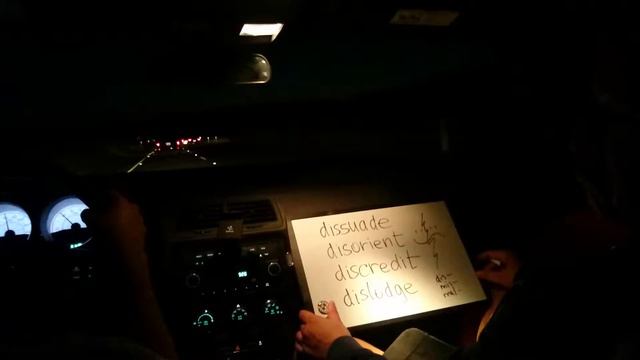 dissuade
disorient
discredit
dislodge
mis-